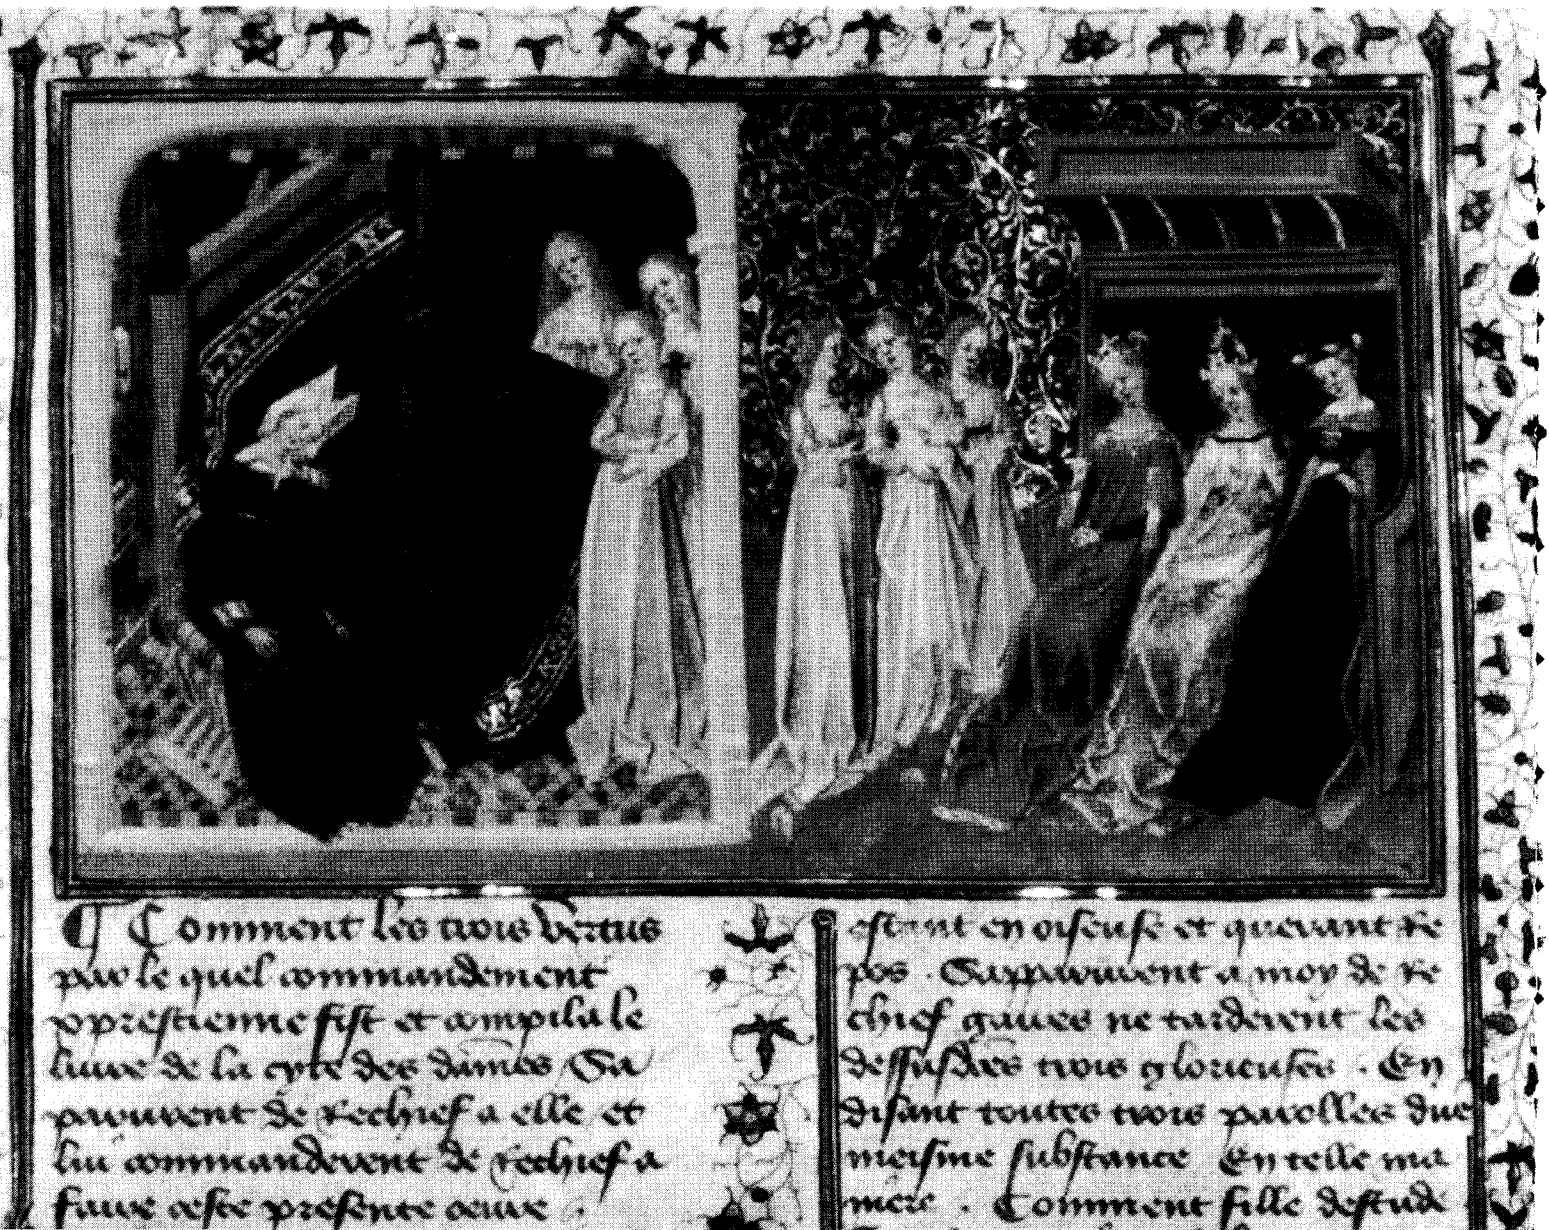 ¶ Comment les trois vertus
par le quel commandement
xp̄restienne fist et compila le
livre de la cyte des dames Sa
parurent de rechief a elle et
lui commanderent de rechief a
faire ceste presente oeuvre .
estant en oiseuse et querant re
pos . Sapparurent a moy de re
chief gaires ne tarderent les
dessusd̄ces trois glorieuses . En
disant toutes trois parolles dune
meisme substance En telle ma
niere . Comment fille destude